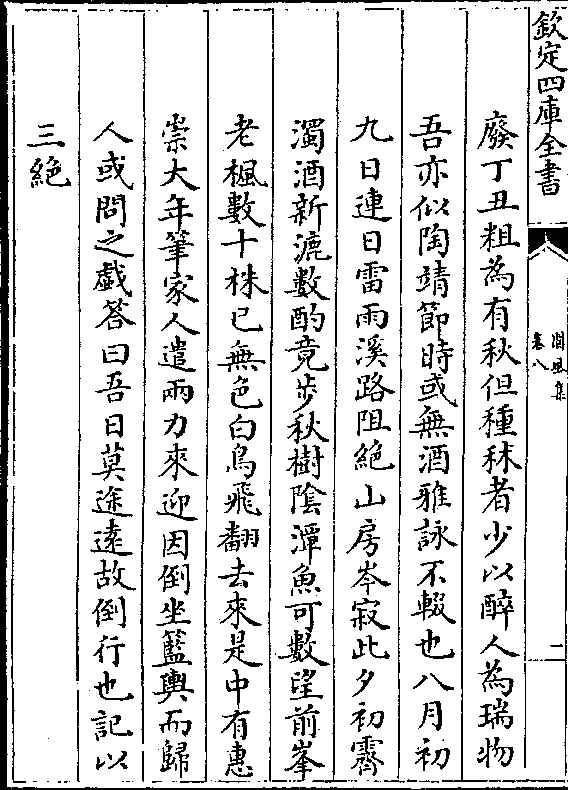 欽定四庫全書
閬風集
卷八
二
廢丁丑粗為有秋但種秫者少以醉人為瑞物
吾亦似陶靖節時或無酒雅詠不輟也八月初
九日連日雷雨溪路阻絶山房岑寂此夕初霽
濁酒新漉數酌竟步秋樹陰潭魚可數望前峯
老楓數十株已無色白鳥飛翻去來是中有惠
崇大年筆家人遣兩力來迎因倒坐籃輿而歸
人或問之戲答曰吾日莫途逺故倒行也記以
三絶